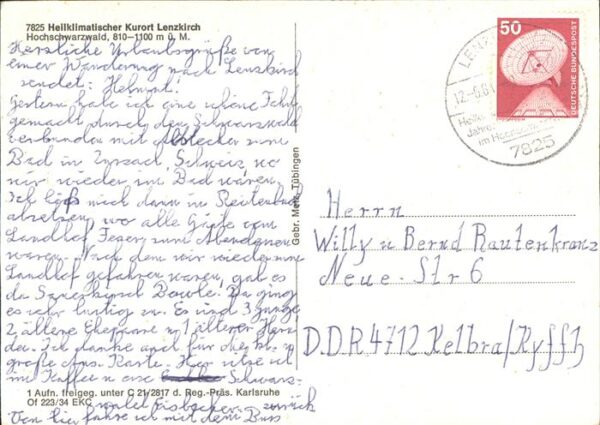 7825 Heilklimatischer Kurort Lenzkirch
Hochschwarzwald, 810–1100 m ü. M.
Herzliche Urlaubsgrüße von
einer Wanderung nach Lenzkirch
sendet: Helmut!
Gestern habe ich eine schöne Fahrt
gemacht durch den Schwarzwald
verbunden mit Abstecher zum
Bad in Zurzach, Schweiz, wo
wir wieder im Bad waren.
Ich ließ mich dann in
absetzen, wo alle Gäste vom
Landhof zum Abendessen
waren. Nach dem wir wieder zum
Landhof gefahren waren, gab es
da Bowle. Da ging
es sehr lustig zu. Es sind 3 junge
2 ältere Ehepaare u 1 älterer Herr
da. Ich danke auch für die kl. u
große Ans. Karte. Hier sitze ich
im Kaffee u esse Schwarz-
wald Eisbecher. zurück
Von hier fahre ich mit dem Bus
1 Aufn. freigeg. unter C 21/2817 d. Reg.-Präs. Karlsruhe
Of 223/34 EKC
Gebr. Metz, Tübingen
50
DEUTSCHE BUNDESPOST
7825
Herrn
Willy u Bernd Rautenkranz
Neue-Str 6
D.D.R 4712 Kelbra/Kyffh